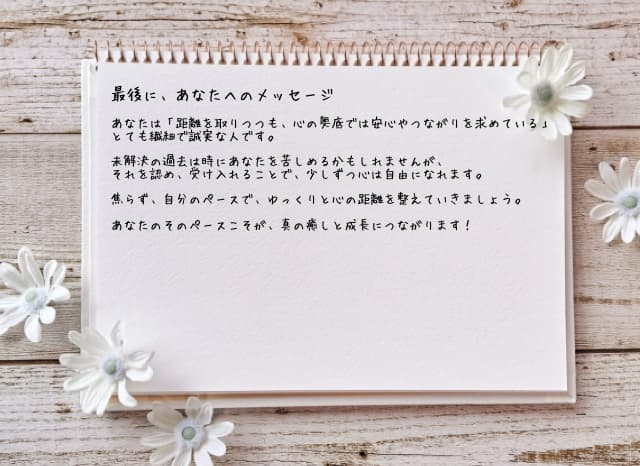 最後に、あなたへのメッセージ
あなたは「距離を取りつつも、心の奥底では安心やつながりを求めている」
とても繊細で誠実な人です。
未解決の過去は時にあなたを苦しめるかもしれませんが、
それを認め、受け入れることで、少しずつ心は自由になれます。
焦らず、自分のペースで、ゆっくりと心の距離を整えていきましょう。
あなたのそのペースこそが、真の癒しと成長につながります！